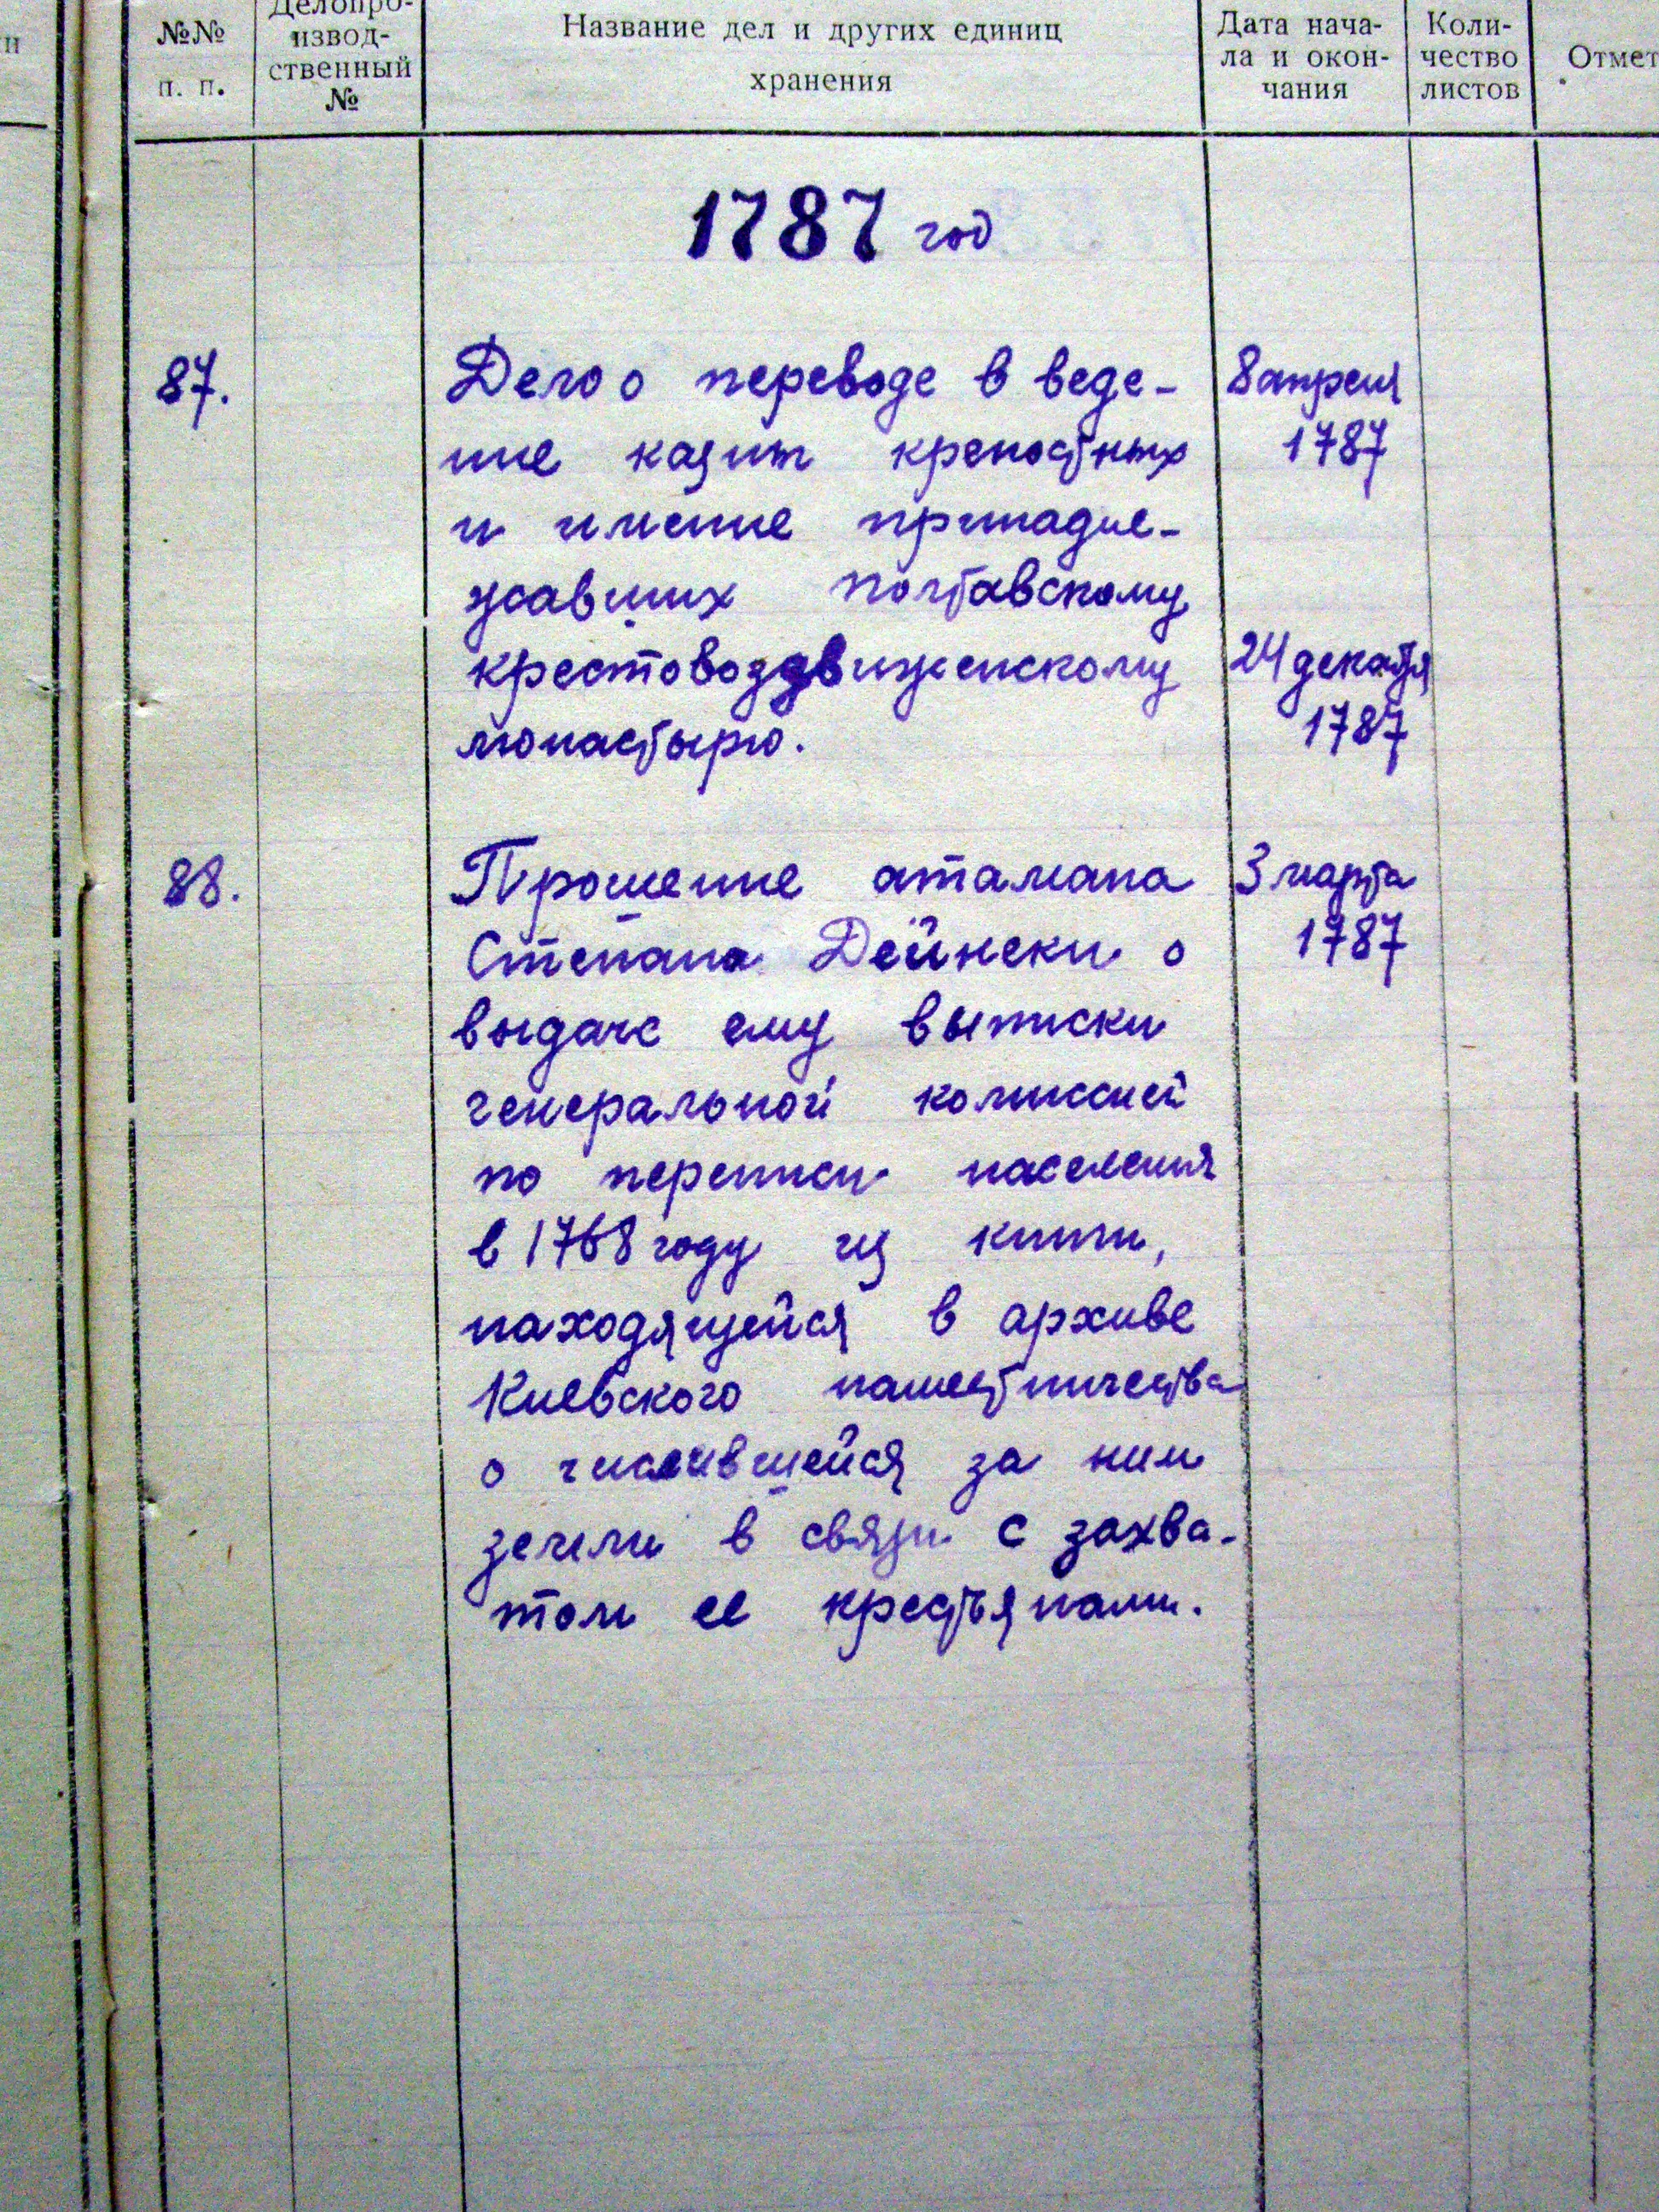 и
№№
п. п.
Делопро-
извод-
ственный
№
Название дел и других единиц
хранения
Дата нача-
ла и окон-
чания
Коли-
чество
листов
Отмет
1787 год
87.
Дело о переводе в веде-
ние казны крепостных
и имение принадле-
жавших полтавскому
крестовоздвиженскому
монастырю.
8 апреля
1787
24 декабря
1787
88.
Прошение атамана
Степана Дейнеки о
выдаче ему выписки
генеральной комиссией
по переписи населения
в 1768 году из книги,
находящейся в архиве
Киевского наместничества
о числившейся за ним
земли в связи с захва-
том ее крестьянами.
3 марта
1787